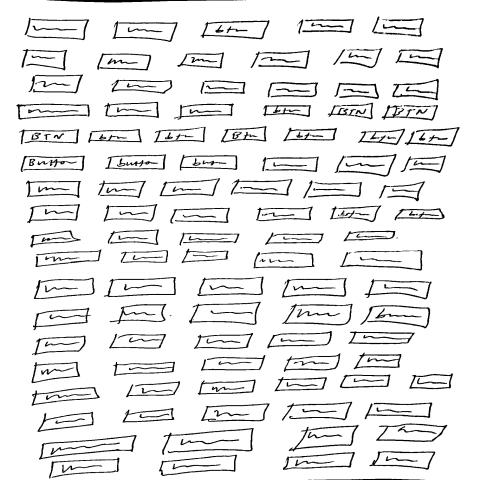 btn
btn BTN BTN
BTN btn btn Btn btn btn btn
Button button btn
btn btn